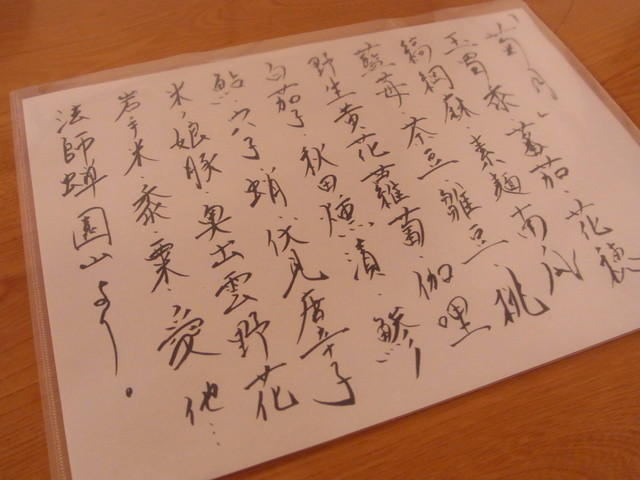 菊月、蕃茄・花穂
玉蜀黍・素麺・南瓜
縞網麻・雛豆・桃
藍苺・茶豆・伽哩
野生黄花蘿蔔・鯵
白茄子・秋田燻漬
鮎・穴子・蛸・伏見唐辛子
米ノ娘豚・奥出雲野花
岩手米・黍・粟・愛 他…
法師蝉 園山より。